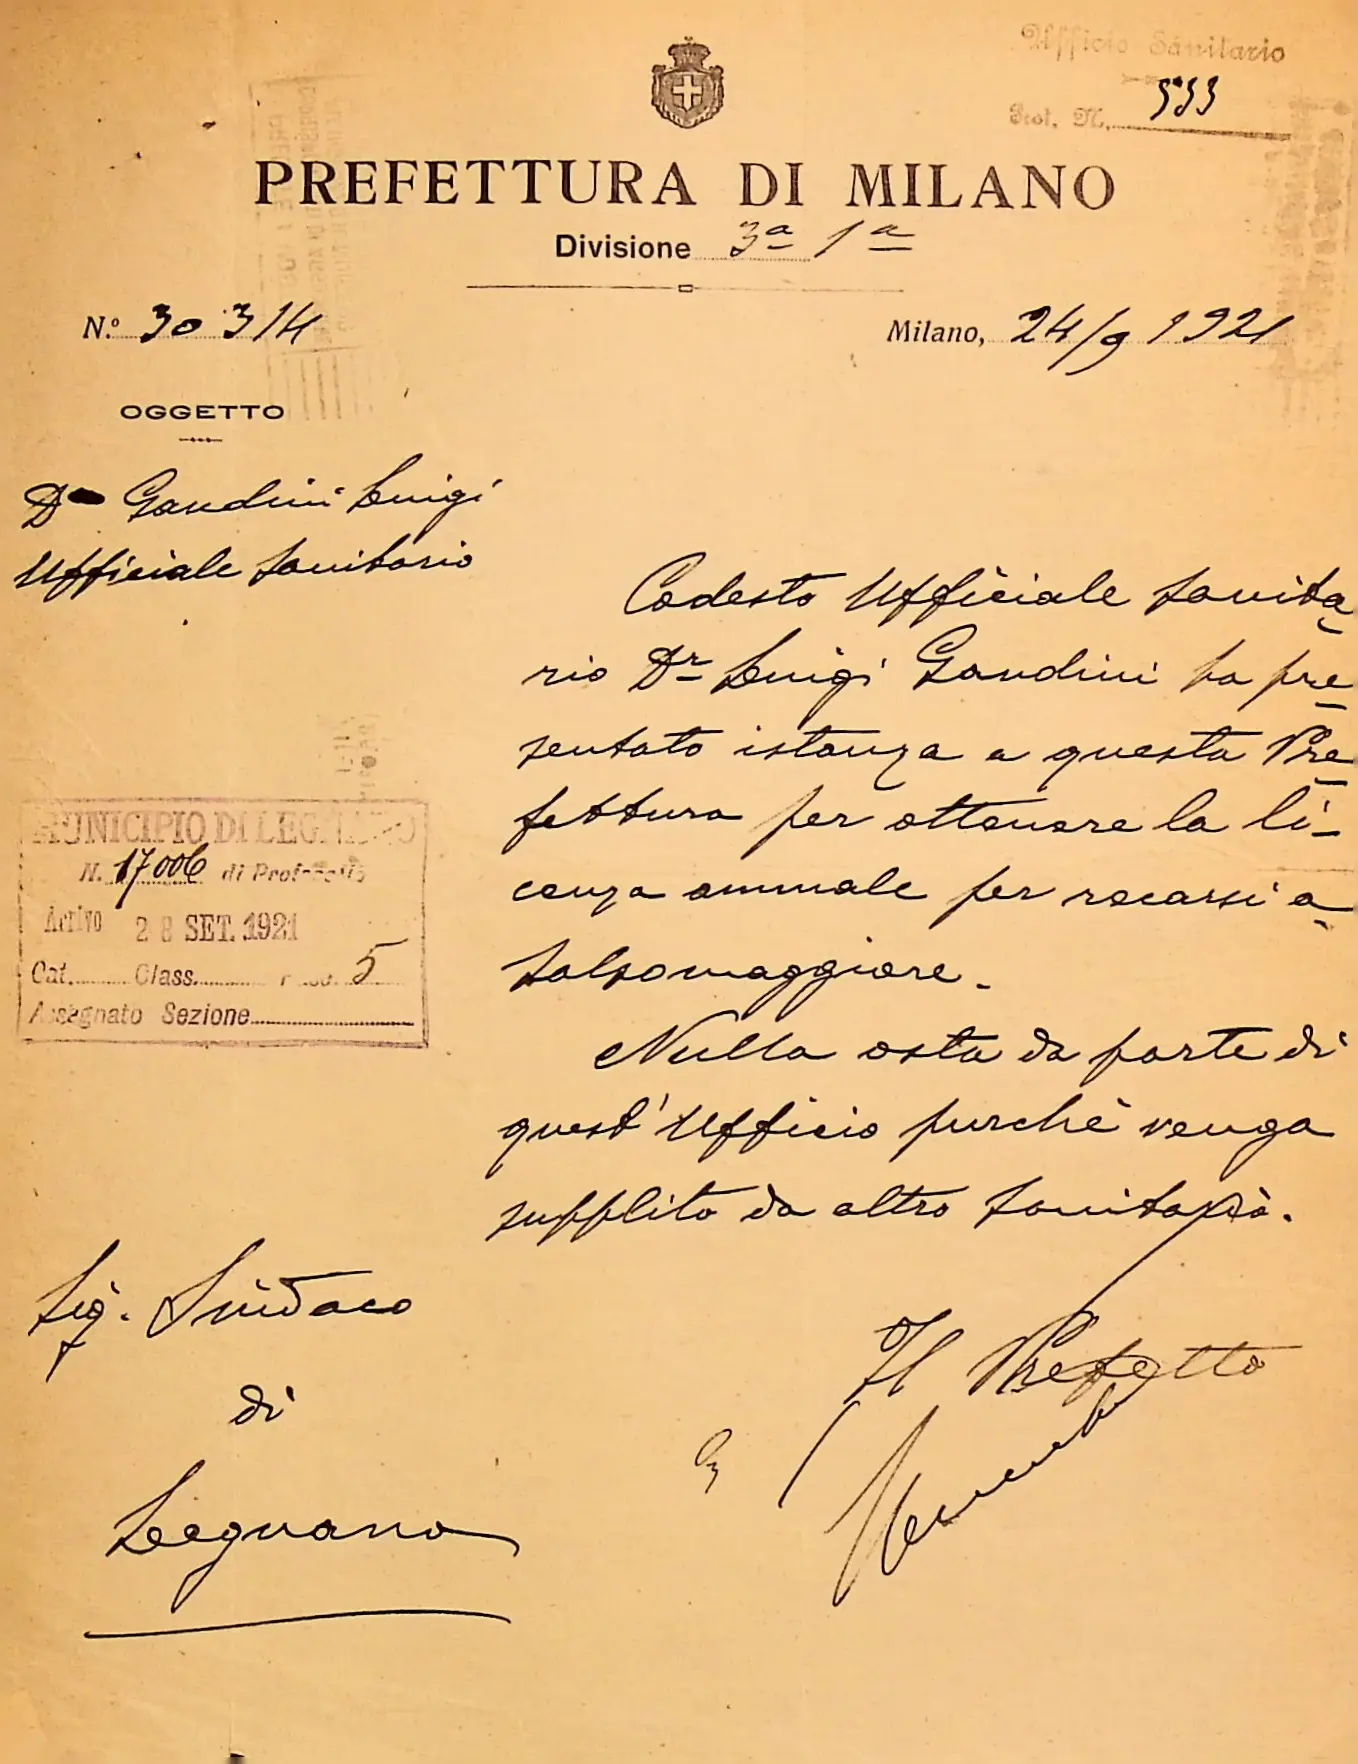 Ufficio Sanitario
Prot. N. 533
PREFETTURA DI MILANO
Divisione 3ª 1ª
N.º 30314
Milano, 24/9 1921
OGGETTO
Dr Gandini Luigi
Ufficiale Sanitario
Codesto Ufficiale Sanita-
rio Dr Luigi Gandini ha pre-
sentato istanza a questa Pre-
fettura per ottenere la li-
cenza annuale per recarsi a
Salsomaggiore.
Nulla osta da parte di
quest'Ufficio purchè venga
supplito da altro Sanitario.
MUNICIPIO DI LEGNANO
N. 17006 di Protocollo
Arrivo 28 SET. 1921
Cat. Class. 5
Assegnato Sezione
Sig. Sindaco
di
Legnano
Il Prefetto